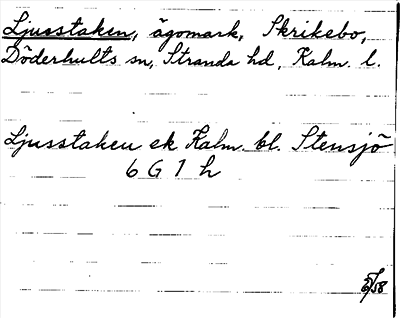 Ljusstaken, ägomark, Skrikebo,
Döderhults sn, Stranda hd, Kalm. l.
Ljusstaken ek Kalm. bl. Stensjö
6 G 1 h